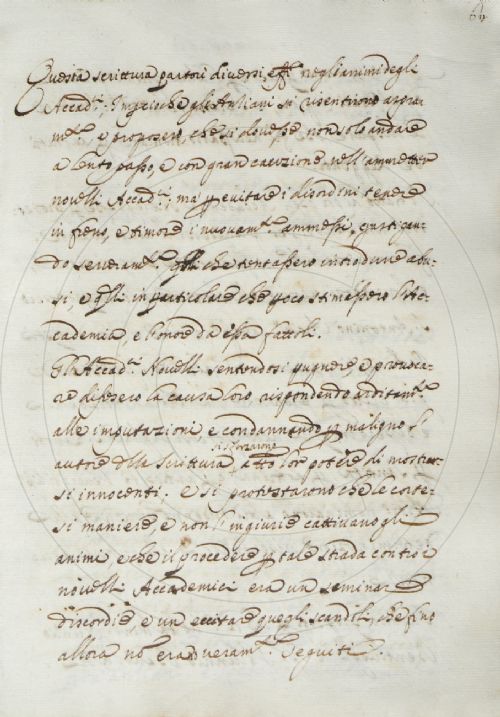 64
Questa scrittura partorì diversi eff.ti negli animi degli
Accad.ci; Imperioche gli Anziani si risentirono aspra-
m.te, e proposero, che si dovesse non solo andare
a lento passo, e con gran cauzione nell'ammetter
novelli Accad.ci, ma p evitare i disordini tenere
in freno, e timore i nuovam.te ammessi, gastigan-
do severam.te quelli che tentassero introdurre abu-
si, e q.lli in particolare che poco stimassero l'Ac-
cademia, e l'onore da essa fattoli.
Gl'Accad.ci Novelli sentendosi pugnere e provoca-
re difesero la causa loro rispondendo arditam.te
alle imputazioni, e condannando p maligno l'
autore dlla scrittura, si sforzarono a tto lor potere di mostrar-
si innocenti. e si protestarono che le corte-
si maniere, e non l'ingiurie cattivano gli
animi, e che il procedere p tale strada contro i
novelli Accademici era un seminar
discordie e un eccitare quegli scandoli, che fino
allora no erano veram.te seguiti.